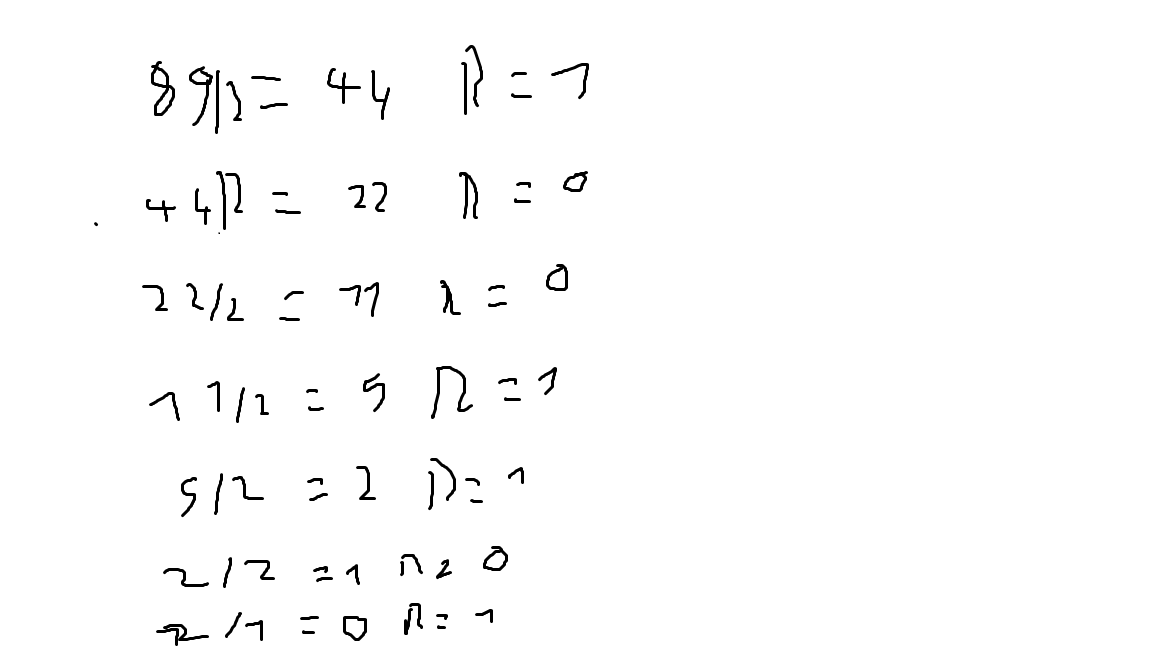 89/2 = 44 R = 1
44/2 = 22 R = 0
22/2 = 11 R = 0
11/2 = 5 R = 1
5/2 = 2 R = 1
2/2 = 1 R = 0
2/1 = 0 R = 1